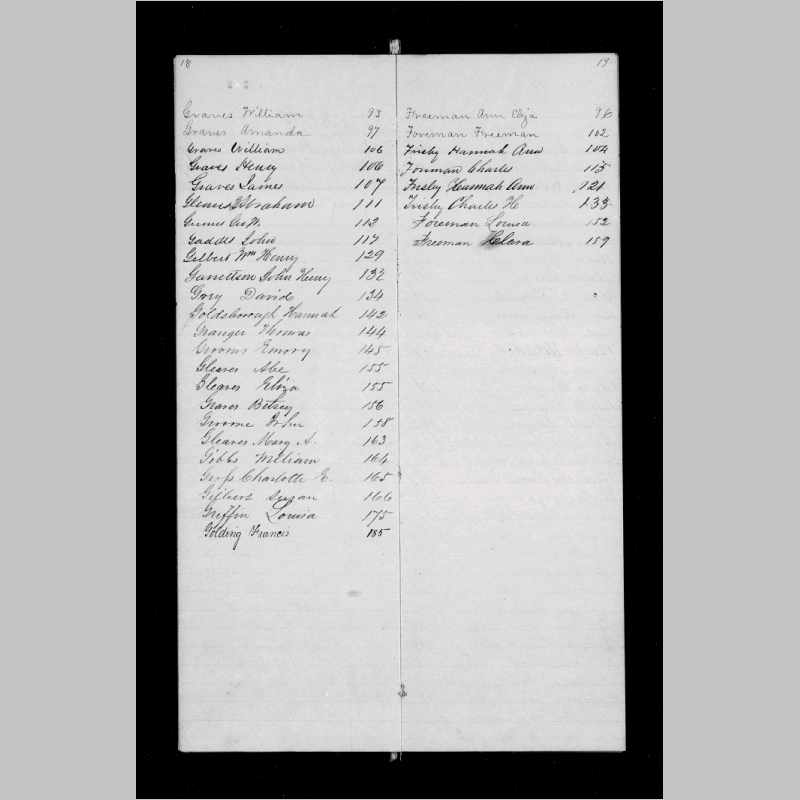 18
Graves William 93
Graves Amanda 97
Graves William 106
Graves Henry 106
Graves James 107
Gleaves Abraham 111
Grimes 113
Gaddes John 117
Gilbert Wm Henry 129
Garrettson John Henry 132
Gory David 134
Goldsborough Hannah 142
Granger Thomas 144
Grooms Emory 145
Gleaves Abe 155
Gleaves Eliza 155
Graves Betsey 156
Groome John 158
Gleaves Mary A. 163
Gibbs William 164
Charlotte E. 165
Gilbert Susan 166
Griffin Louisa 175
Golding Francis 185
19
Freeman Ann Eliza 98
Foreman Freeman 102
Frisby Hannah Ann 104
Foreman Charles 115
Frisby Hannah Ann 121
Frisby Charles H 133
Foreman Louisa 152
Freeman Clara 159